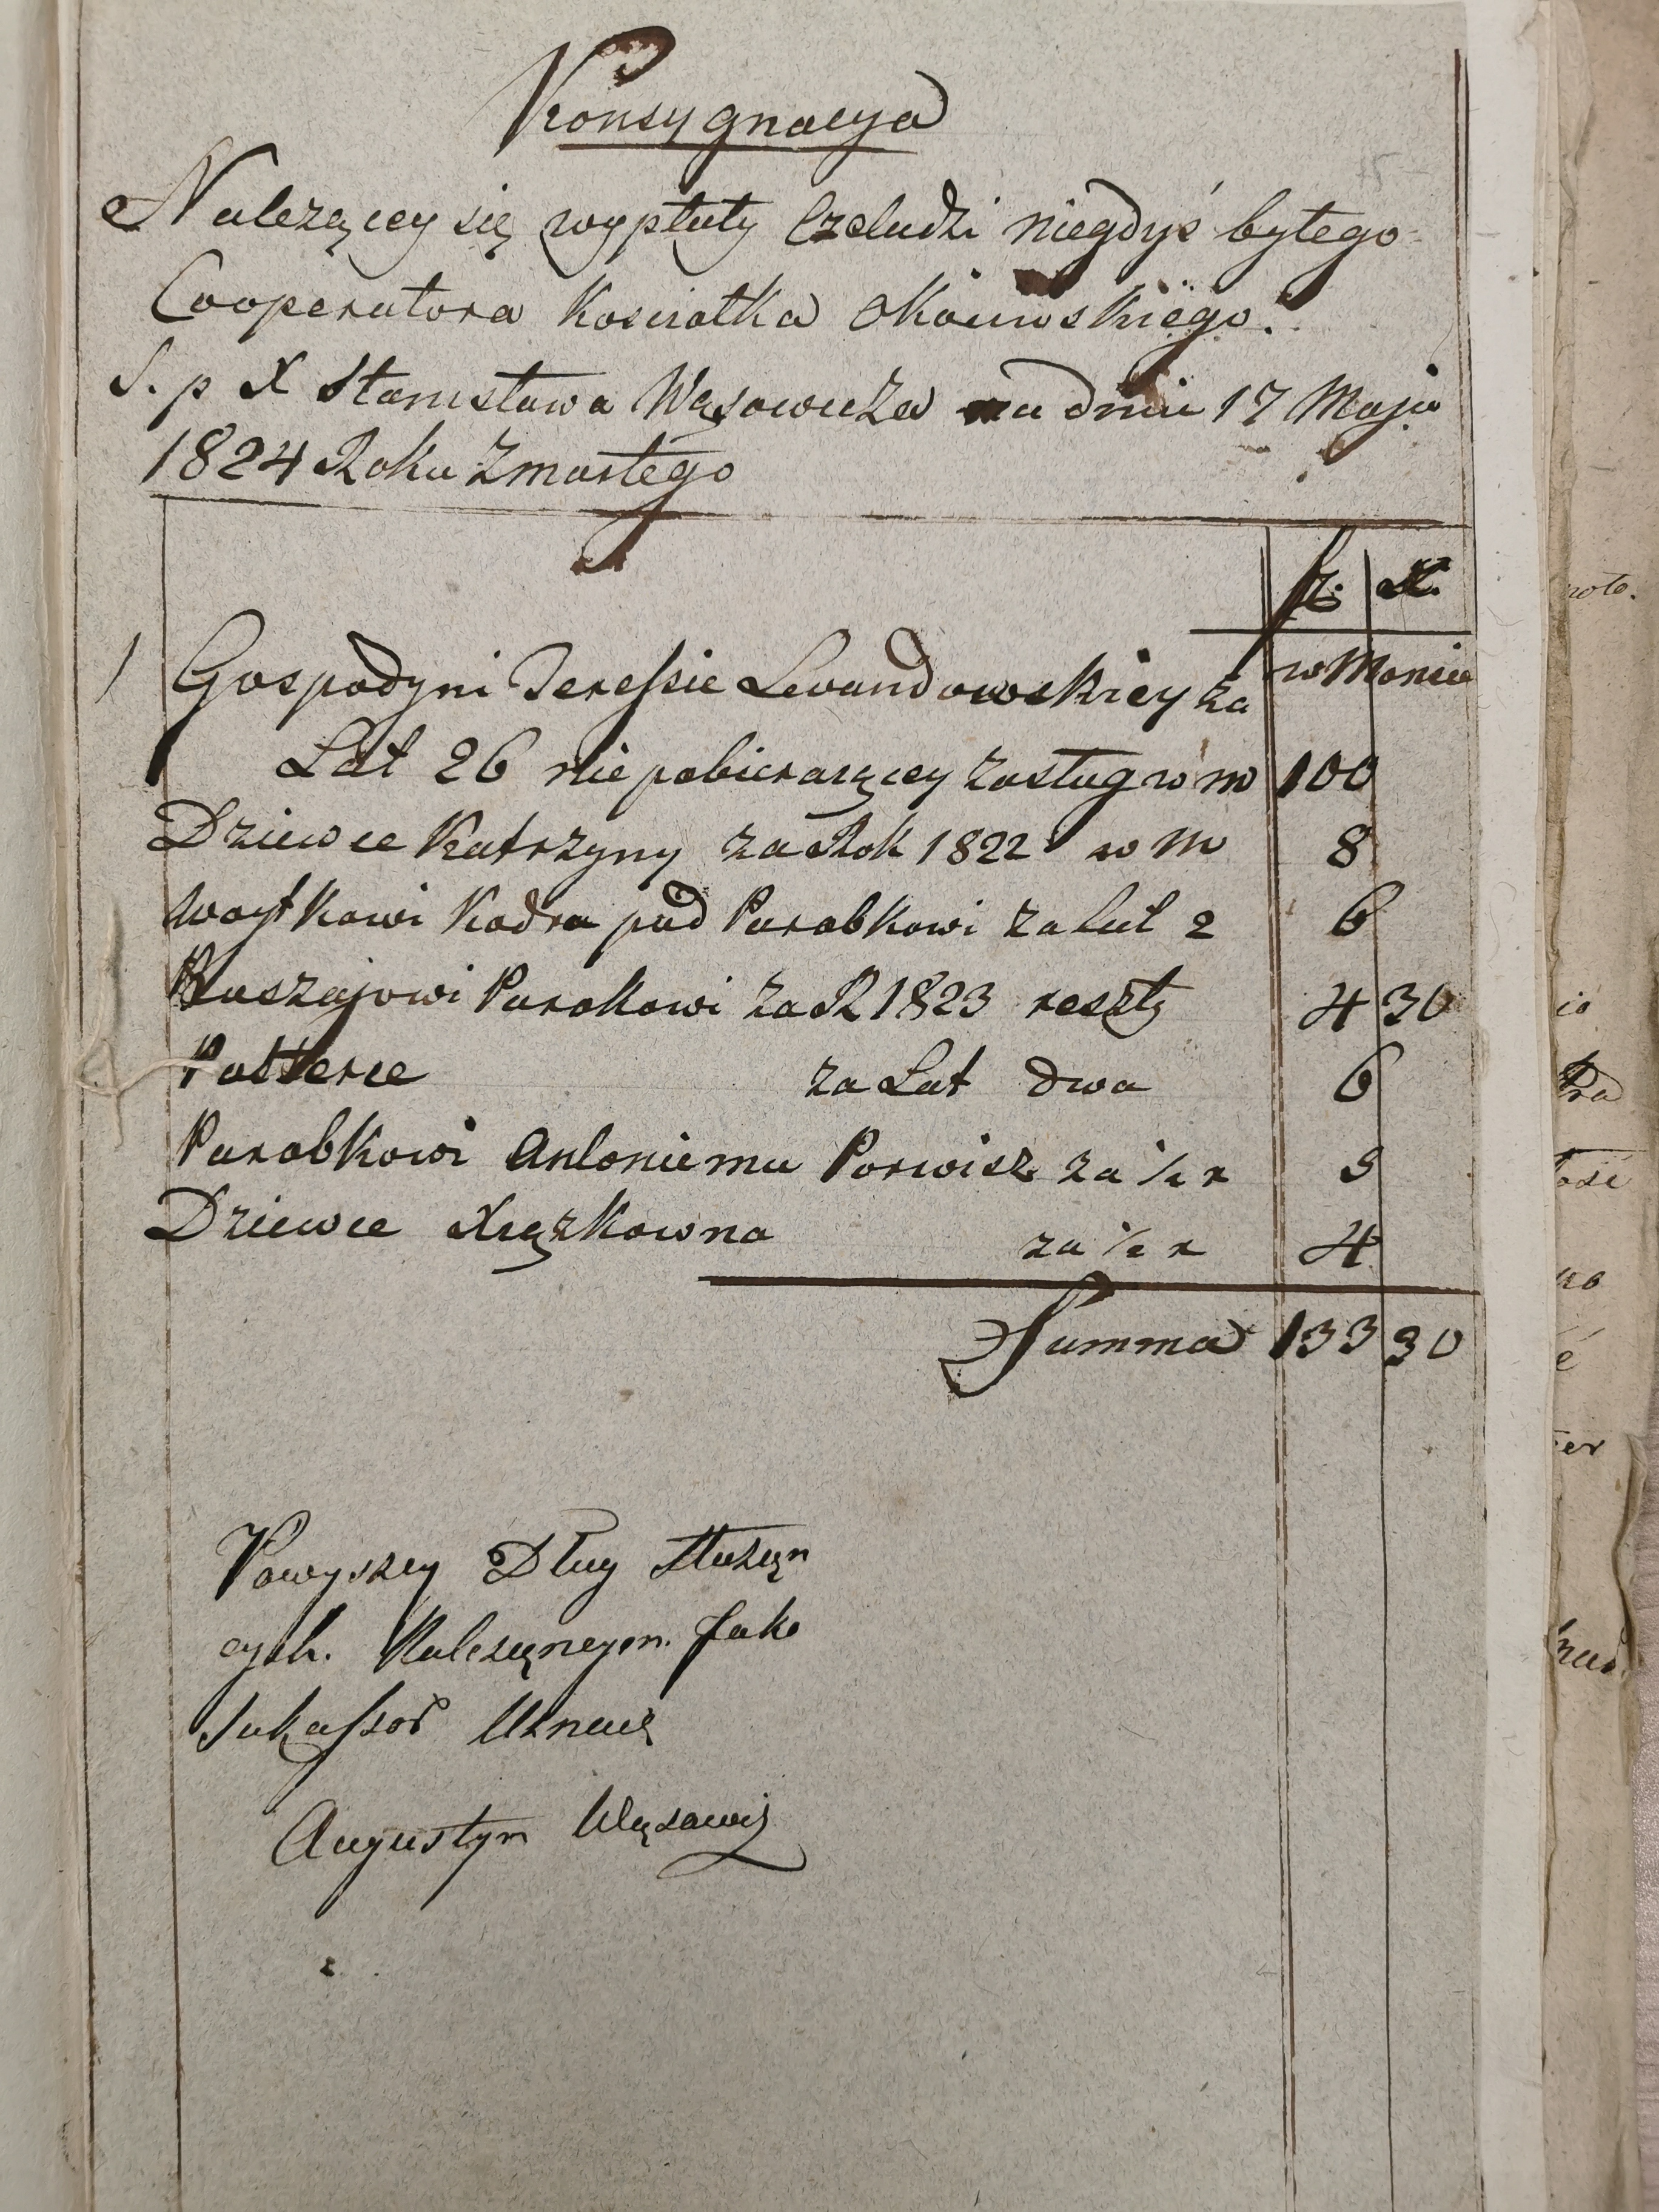 Konsygnacya
Należącey się wypłaty Czeladzi niegdyś bytego
Cooperatora Kosciołka
S. p X Stanisława Wąsowicza na dniu 17 Maja
1824 Roku Zmarłego
w Moncie
1 Gospodyni Teressie Lewandowskiey za
Lat 26 nie pobieraiącey zasług w m 100
Dziewce Katrzyny za Rok 1822 w m 8
Woytkowi Kodra pod Parobkowi za lat 2 6
Parokowi za R 1823 reszty 4 30
Pasterce za Lat dwa 6
Parobkowi Antoniemu Porwisz za ½ r 5
Dziewce Xiązkowna za ½ r 4
Summa 133 30
Powyszey Dług służąn
cych. Nalezący m. Jako
Sukassor Uznaię
Augustyn Wąsowicz